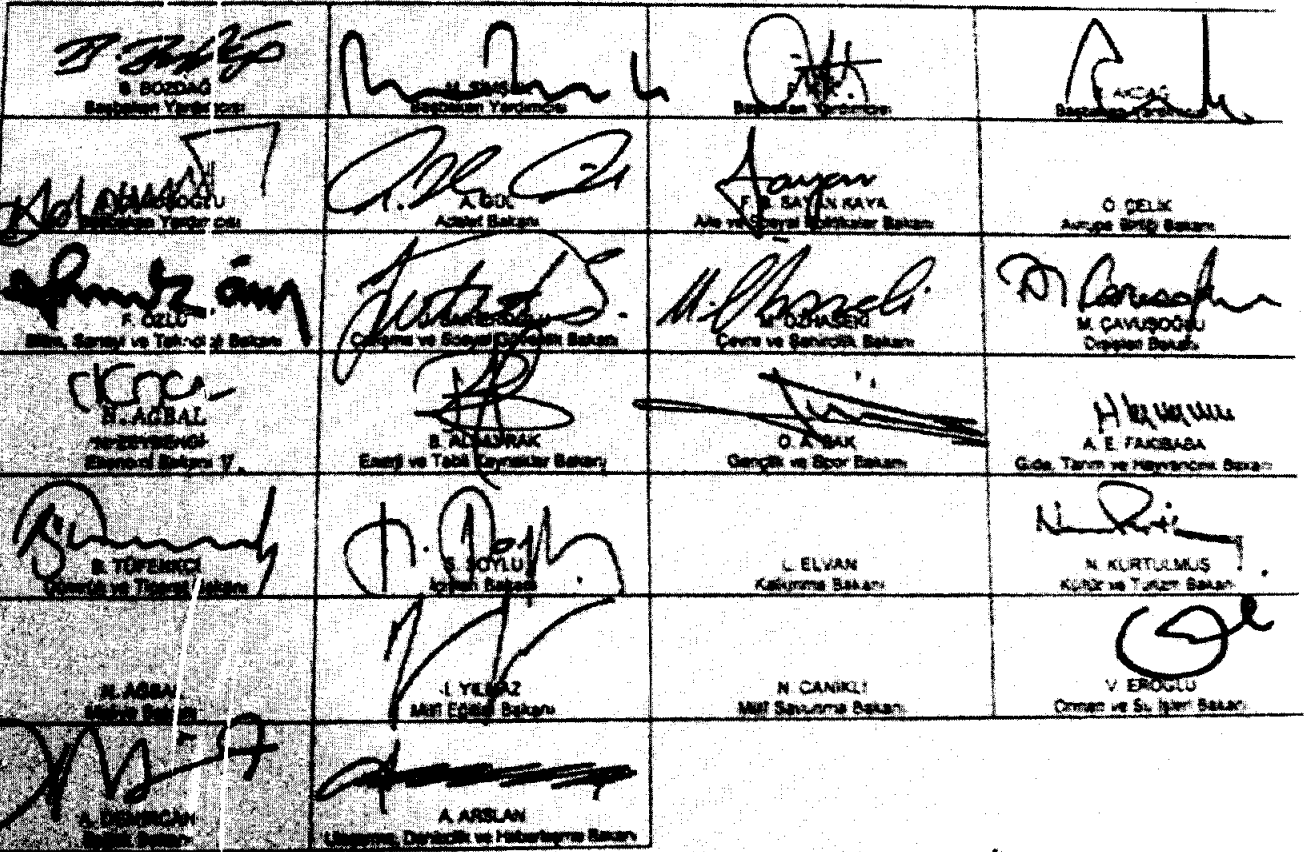 B. BOZDAĞ
Başbakan Yardımcısı
M. ŞİMŞEK
Başbakan Yardımcısı
Başbakan Yardımcısı
AKDAĞ
Başbakan Yardımcısı
ÇAVUŞOĞLU
Başbakan Yardımcısı
A. GÜL
Adalet Bakanı
F. B. SAYAN KAYA
Aile ve Sosyal Politikalar Bakanı
Ö. ÇELİK
Avrupa Birliği Bakanı
F. ÖZLÜ
Bilim, Sanayi ve Teknoloji Bakanı
Çalışma ve Sosyal Güvenlik Bakanı
M. ÖZHASEKİ
Çevre ve Şehircilik Bakanı
M. ÇAVUŞOĞLU
Dışişleri Bakanı
N. AĞBAL
N. ZEYBEKCİ
Ekonomi Bakanı V.
B. ALBAYRAK
Enerji ve Tabii Kaynaklar Bakanı
O. A. BAK
Gençlik ve Spor Bakanı
A. E. FAKIBABA
Gıda, Tarım ve Hayvancılık Bakanı
B. TÜFENKCİ
Gümrük ve Ticaret Bakanı
S. SOYLU
İçişleri Bakanı
L. ELVAN
Kalkınma Bakanı
N. KURTULMUŞ
Kültür ve Turizm Bakanı
N. AĞBAL
Maliye Bakanı
İ. YILMAZ
Millî Eğitim Bakanı
N. CANİKLİ
Millî Savunma Bakanı
V. EROĞLU
Orman ve Su İşleri Bakanı
A. DEMİRCAN
Sağlık Bakanı
A. ARSLAN
Ulaştırma, Denizcilik ve Haberleşme Bakanı